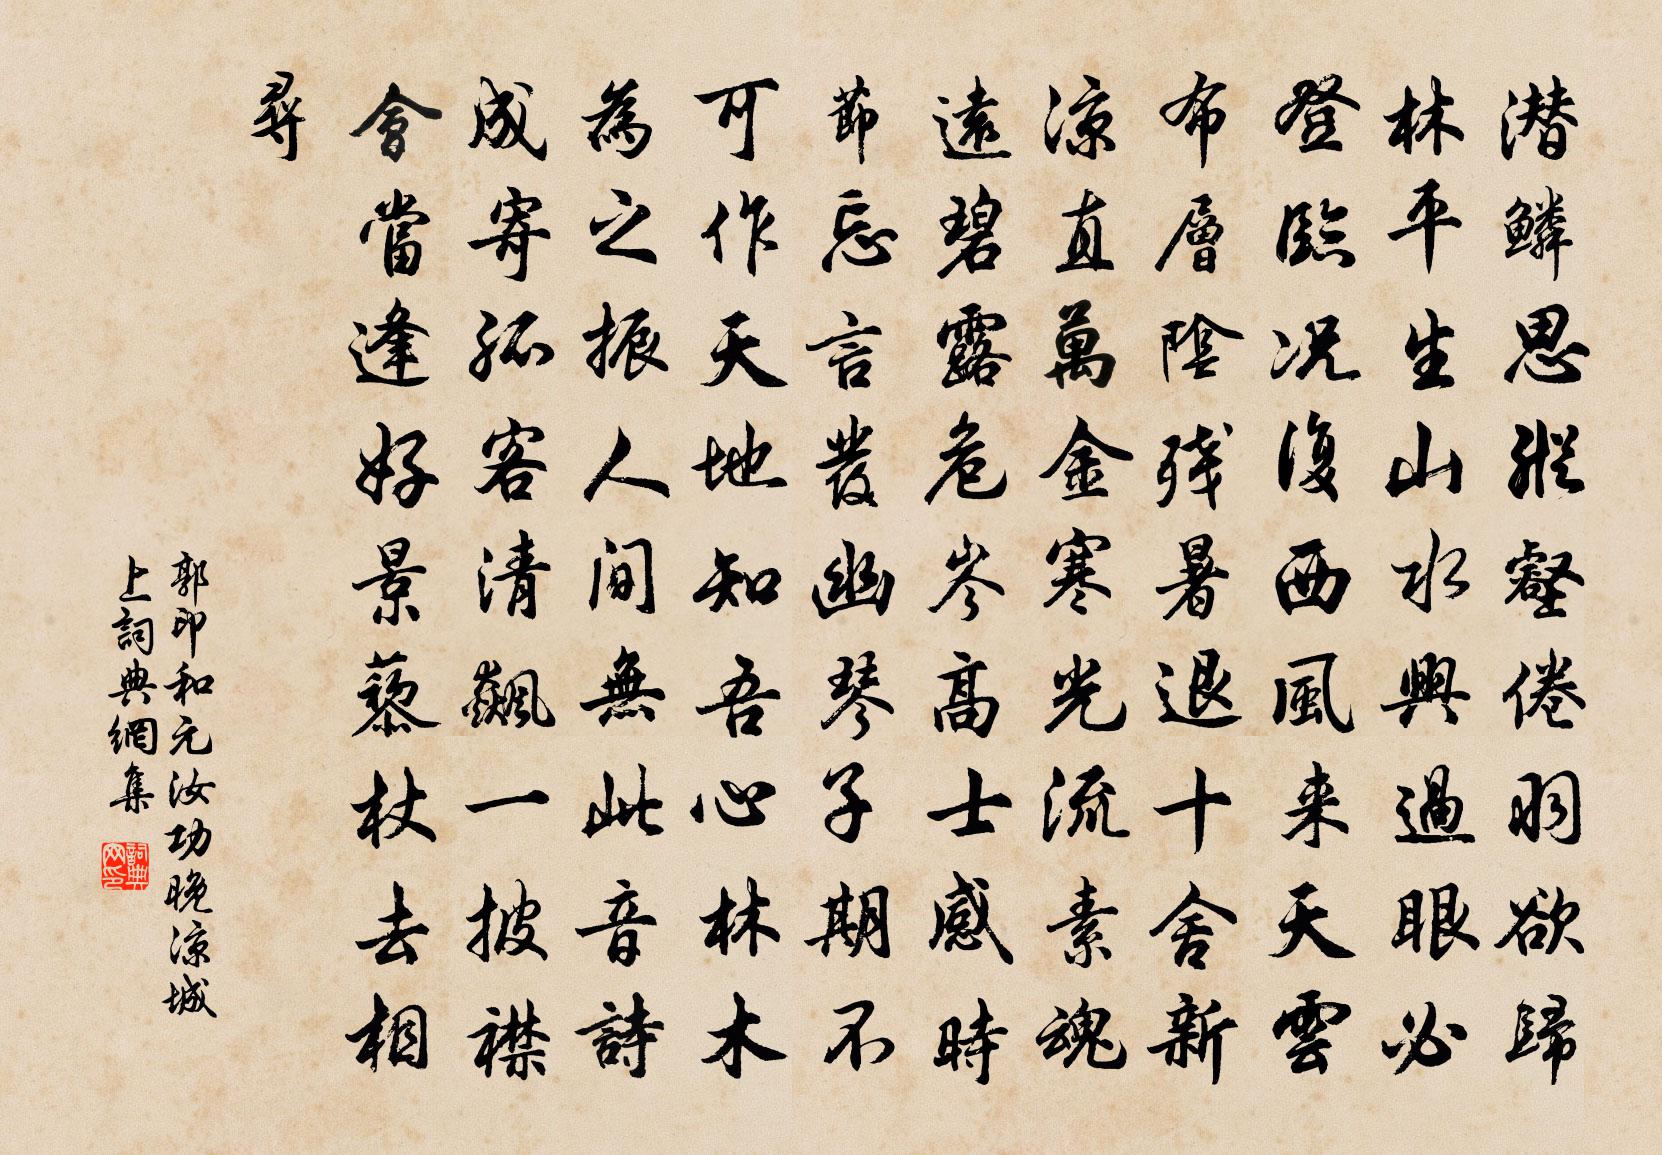 潜鱗思縱壑倦羽欲歸
林平生山水興過眼必
登臨况復西風来天雲
布層陰残暑退十舍新
凉直萬金寒光流素魂
遠碧露危岑高士感時
節忘言發幽琴子期不
可作天地知吾心林木
為之振人間無此音詩
成寄孤客清飆一披襟
會當逢好景藜杖去相
尋
郭印和元汝功晚凉城
上詞典網集
詞典网印